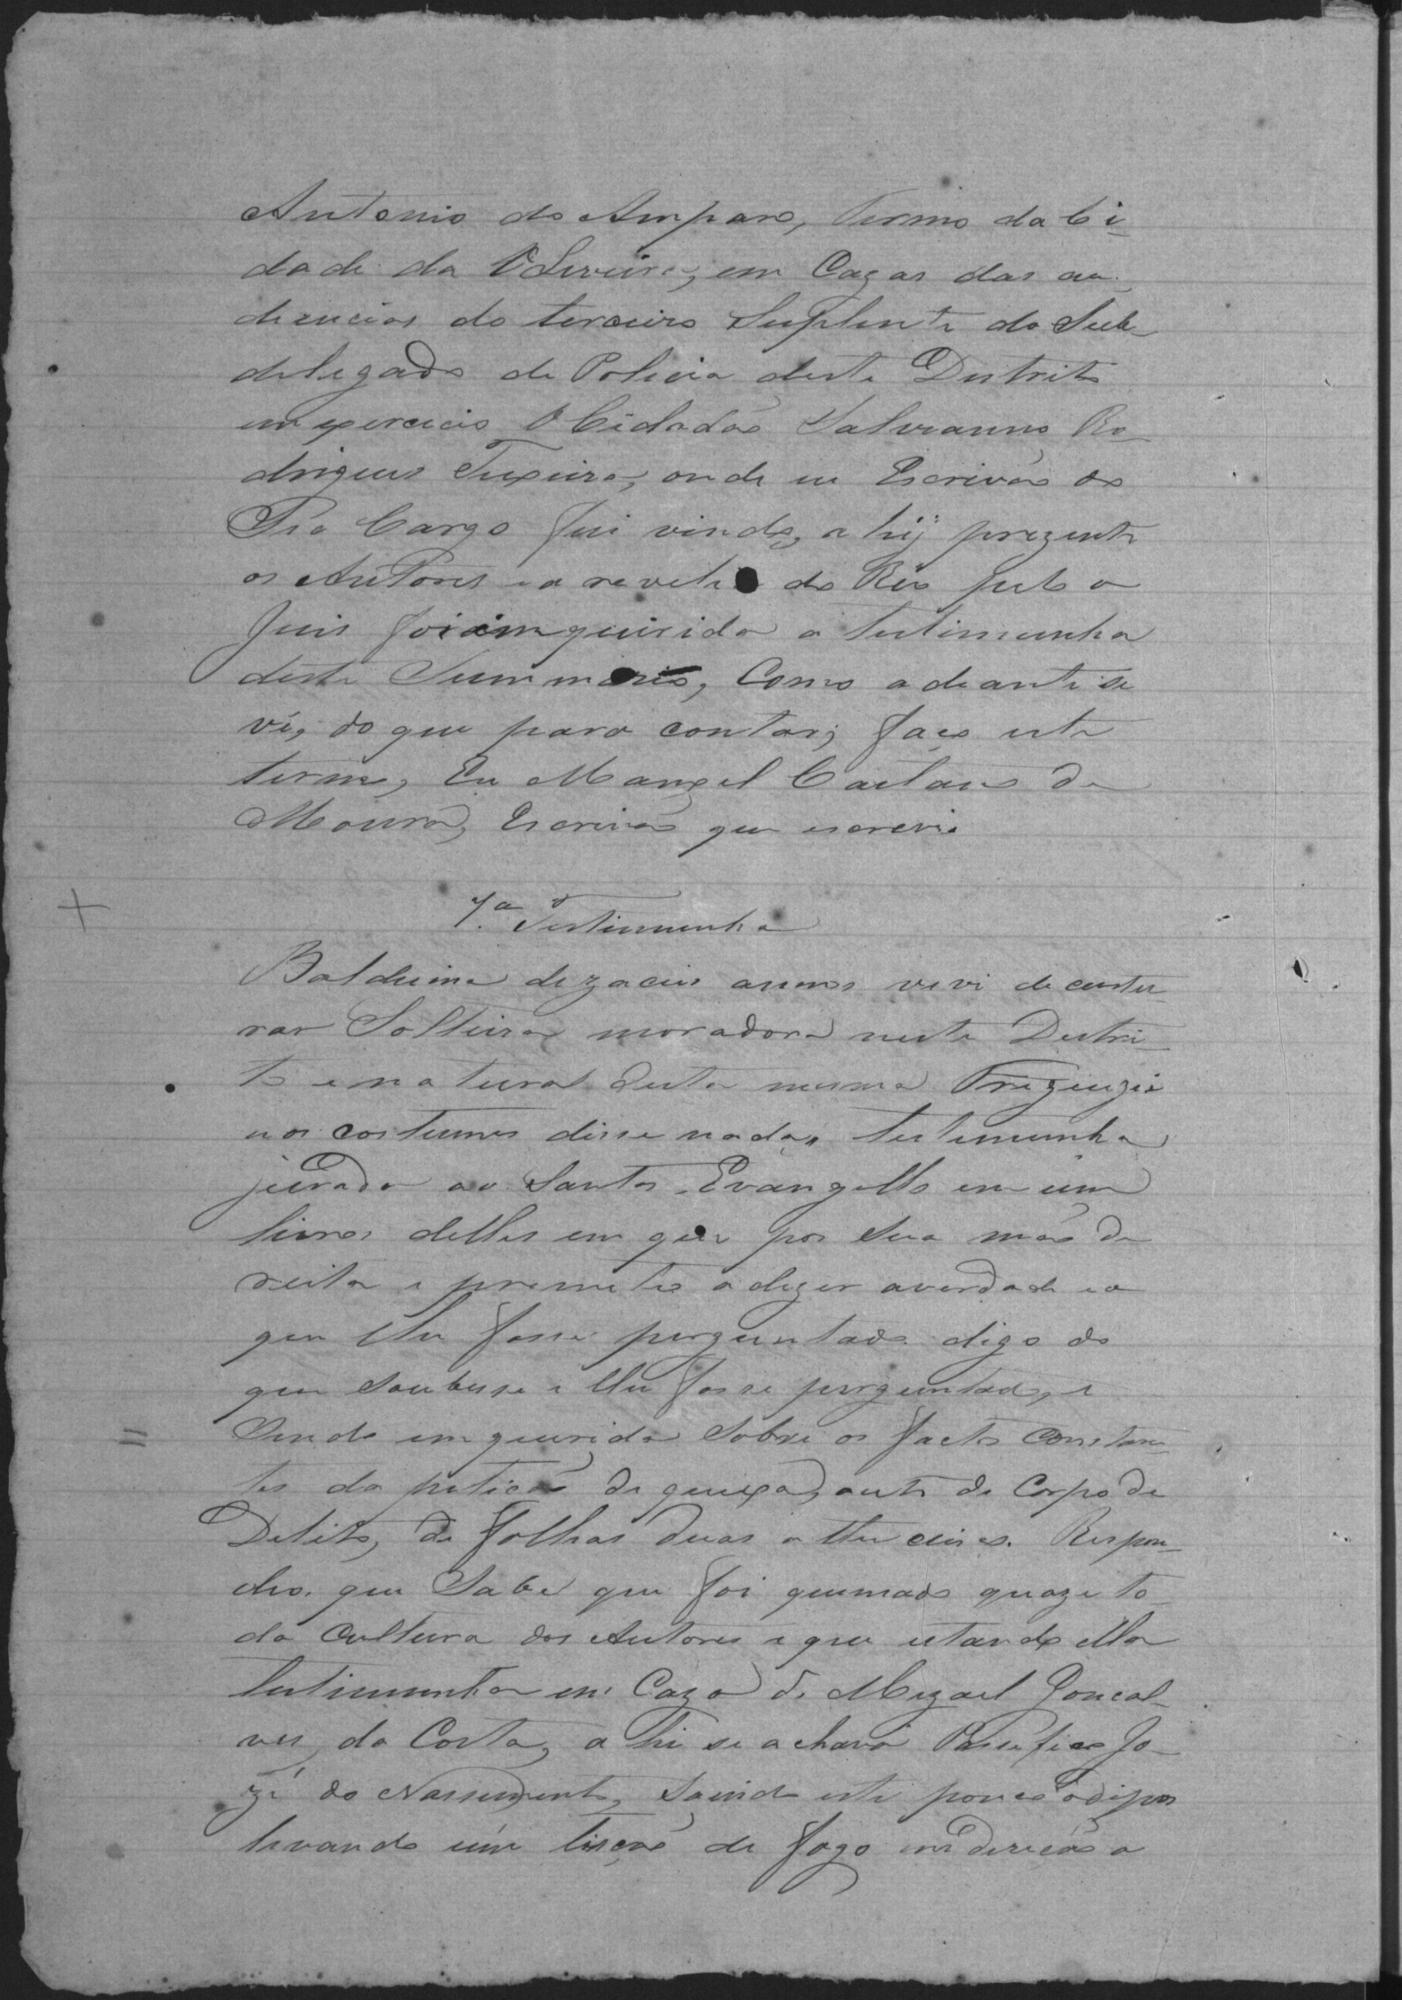 Antonio do Amparo, Termo da Ci-
dade da Oliveira, em Cazas das au-
diencias do terceiro Suplente do Sub-
delegado de Policia deste Destrito
em exercicio O Cidadão Salvianno Ro-
drigues Teixeira, onde eu Escrivão de
Seo Cargo fui vindo, a hij prezente
os Autores e a revelia do Reo pelo
Juis foi inquirida a testimunha
deste Summario, Como adeante se
vê, do que para contar, faço este
termo, Eu Manoel Caetano de
Moura, Escrivão que escrevi.
1.ª Testimunha
Balduina dezaceis annos vivi de custu-
rar Solteira moradora neste Destri-
to e natural desta mesma Fregeuzia
aos costumes disse nada, testimunha
jurada ao Santos Evangello em um
livro delles em que pos sua mão de
reita e prometeo a dizer averdade e o
que lhe fosse perguntado digo do
que soubese e lhe fosse perguntado, e
Sendo emquerida Sobre os factos constan-
tes da petição de queixa, auto de Corpo de
Delito, de folhas duas a the cinco. Respon-
deo que Sabe que foi queimado quaze to-
da Cultura dos Autores e que estando ella
testimunha em Caza de Mizael Goncal-
ves da Costa, a hi se achava Passifico Jo-
zé do Nassimento, Saindo este pouco adipos
levando um tisção de fogo em dereção a